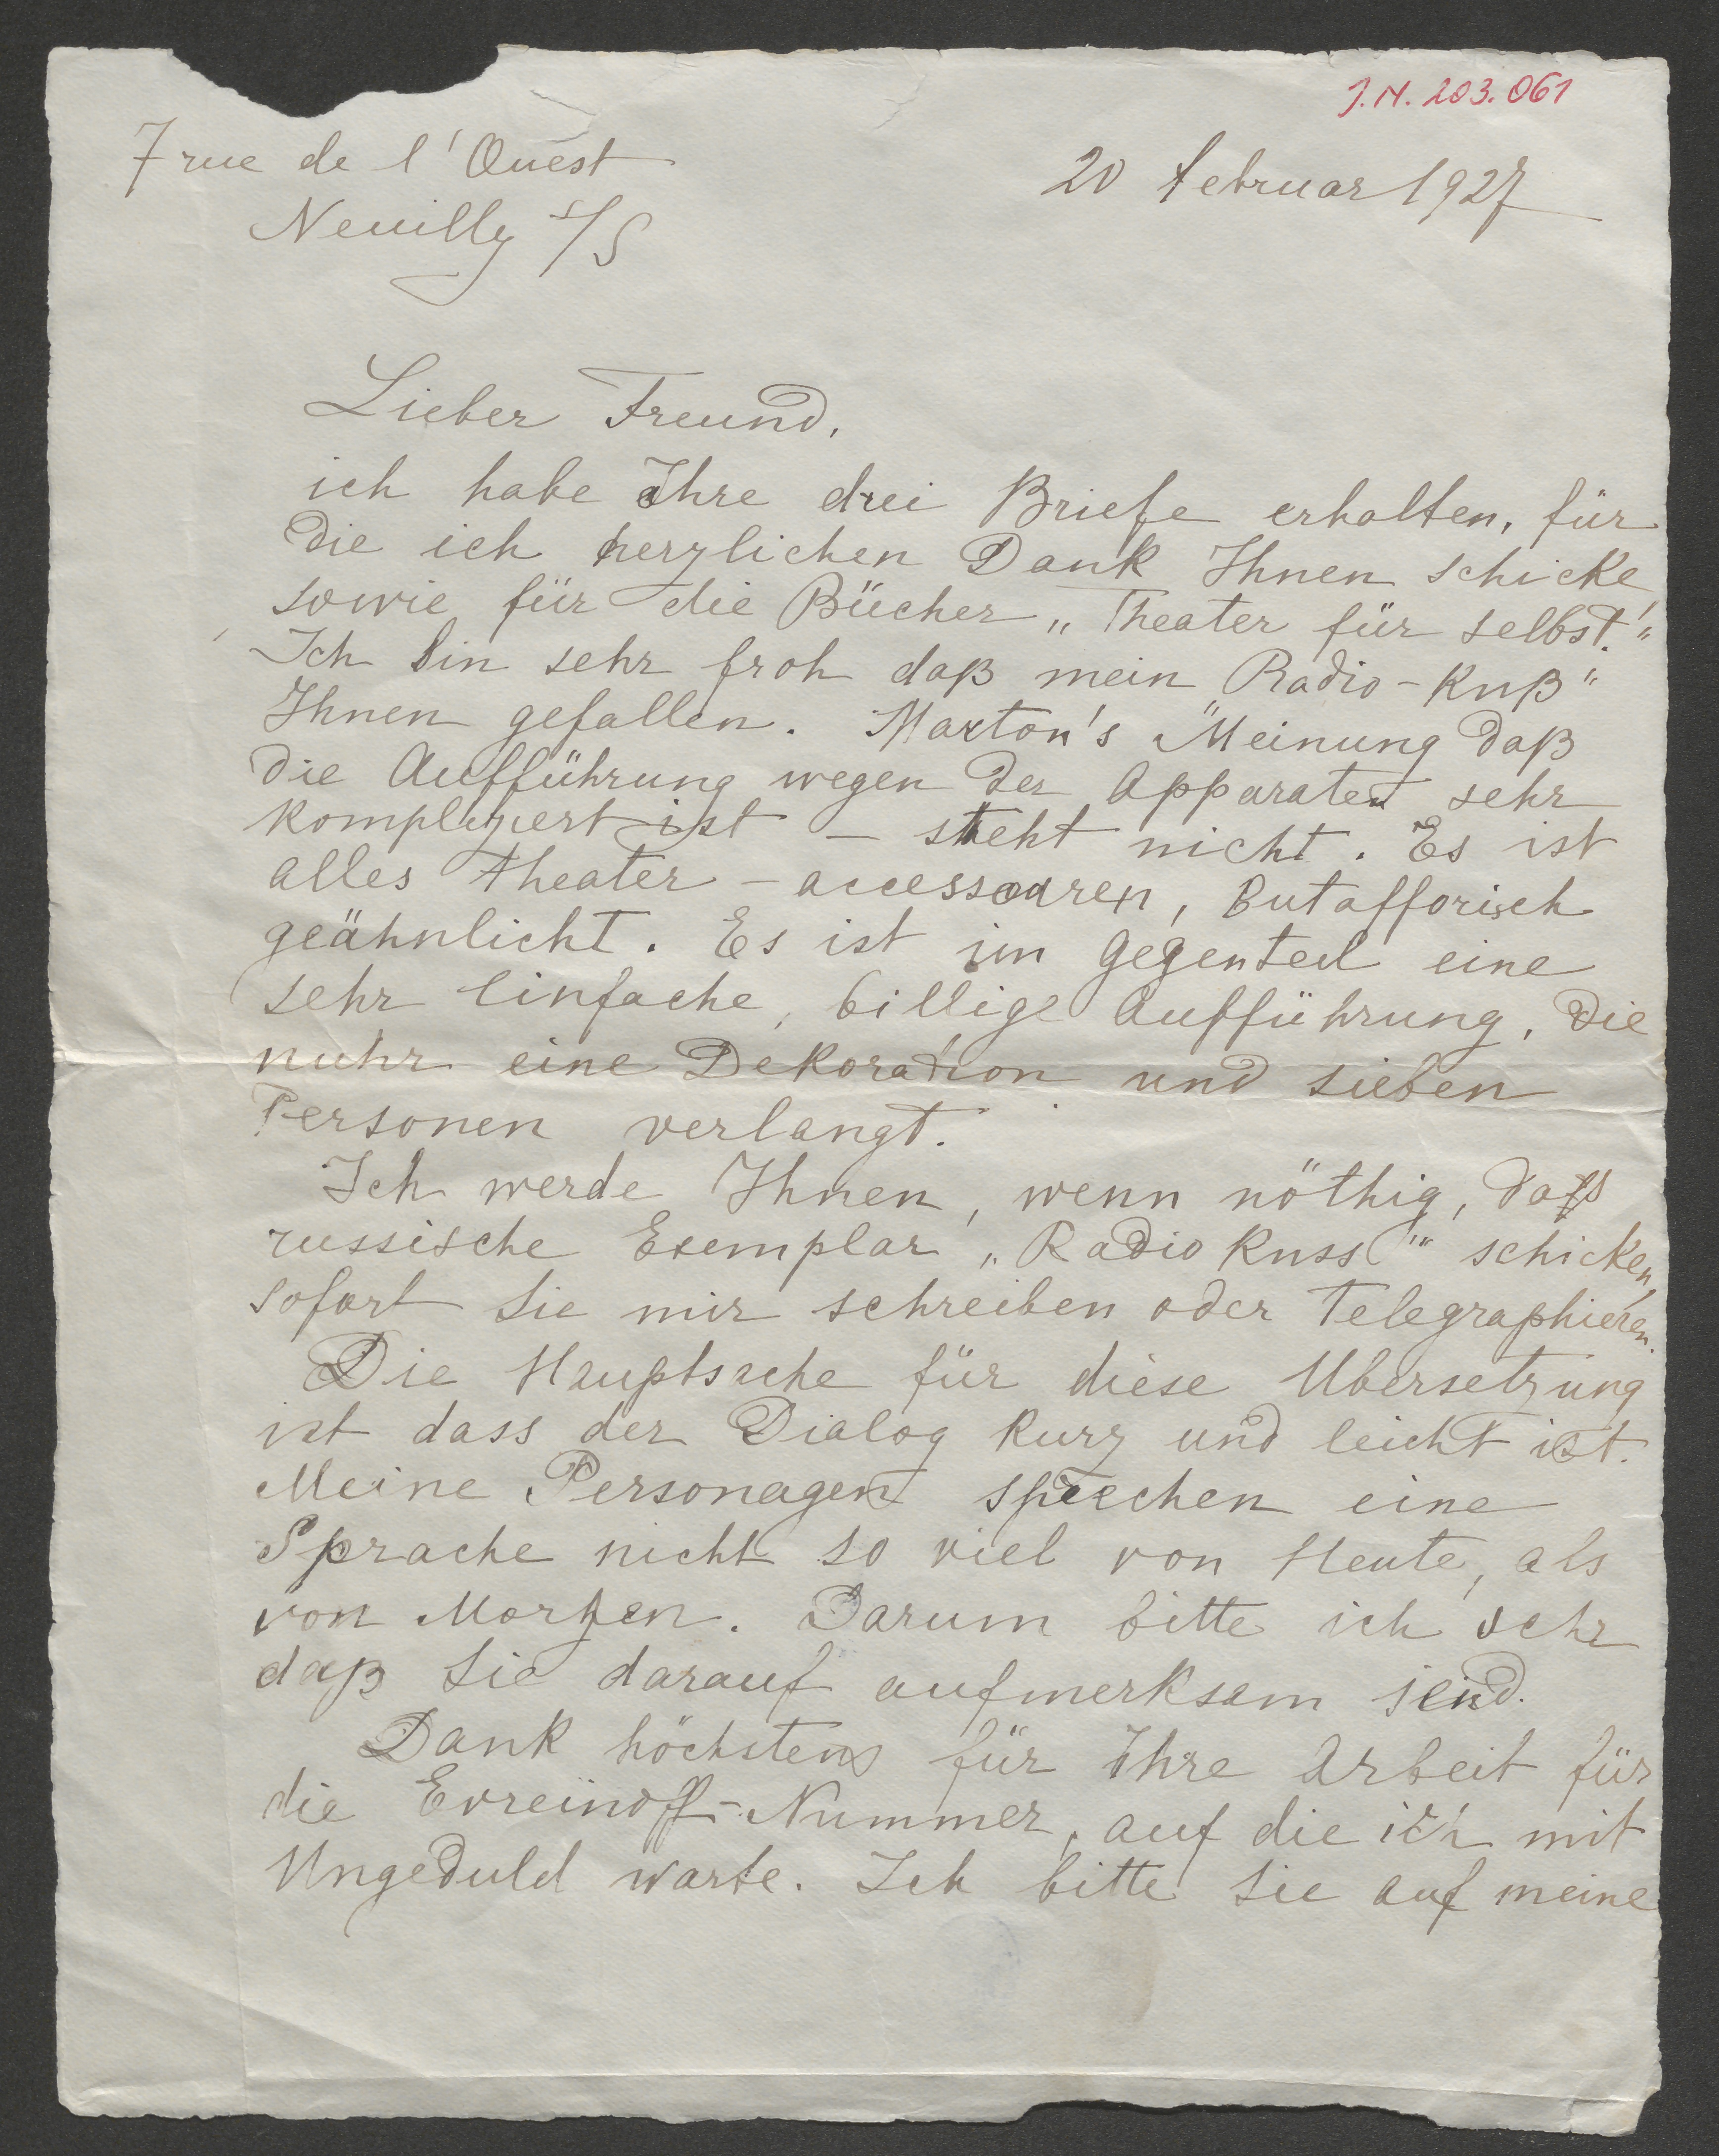 J.N. 203.061
7 rue de l'Ouest
Neuilly s/S
20 februar 1927
Lieber Freund,
ich habe Ihre drei Briefe erhalten, für
die ich herzlichen Dank Ihnen schicke,
sowie für die Bücher „Theater für selbst!"
Ich bin sehr froh daß mein „Radio-Kuß"
Ihnen gefallen. Marton's Meinung daß
die Aufführung wegen der Apparaten sehr
kompliziert ist – steht nicht. Es ist
alles Theater-accessoaren, Butafforisch
geähnlicht. Es ist im Gegenteil eine
sehr einfache, billige Aufführung, die
nuhr eine Dekoration und sieben
Personen verlangt.
Ich werde Ihnen, wenn nöthig, das
russische Exemplar „Radio Kuss" schicken,
sofort Sie mir schreiben oder telegraphieren.
Die Hauptsache für diese Ubersetzung
ist dass der Dialog kurz und leicht ist.
Meine Personagen sprechen eine
Sprache nicht so viel von Heute, als
von Morgen. Darum bitte ich sehr
daß Sie darauf aufmerksam seind.
Dank höchstens für Ihre Arbeit für
die Evreinoff-Nummer, auf die ich mit
Ungeduld warte. Ich bitte Sie auf meine